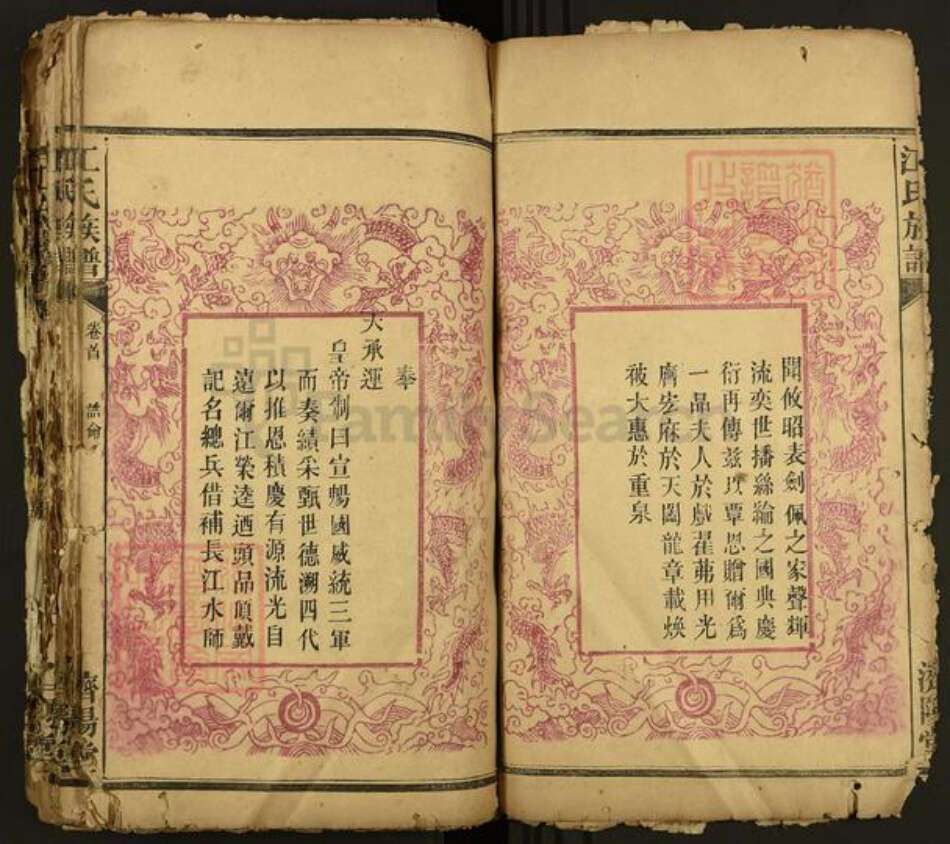 江氏族譜
聞攸昭表劍佩之家聲輝
流奕世播絲綸之國典慶
衍再傳茲以覃恩贈爾爲
一品夫人於戲翟茀用光
膺宏庥於天闕龍章載煥
被大惠於重泉
濟陽堂
奉
天承運
皇帝制曰宣暢國威統三軍
而奏績采甄世德溯四代
以推恩積慶有源流光自
遠爾江榮逵迺頭品頂戴
記名總兵借補長江水師
江氏族譜
卷首
誥命
濟陽堂